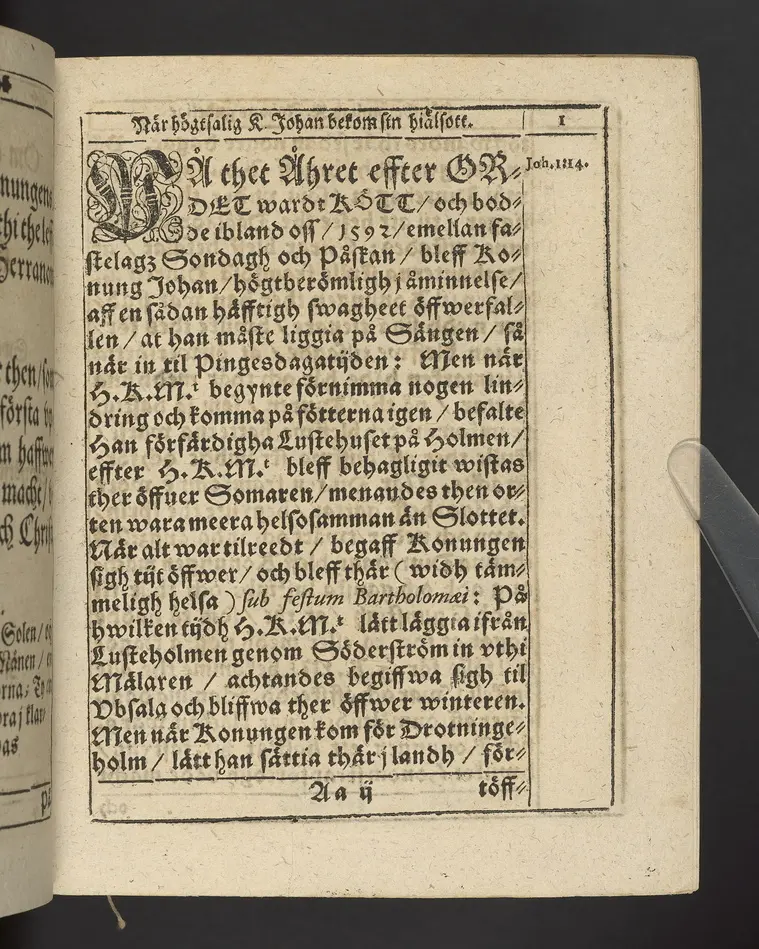 När högtsalig K. Johan bekom sin hiälsott.
1
PÅ thet Åhret effter OR⸗
Joh. 1:14.
DET wardt KÖTT / och bod⸗
de ibland oss / 1592 / emellan fa⸗
stelagz Sondagh och Påskan / bleff Ko⸗
nung Johan / högtberömligh j åminnelse /
aff en sådan häfftigh swagheet öffwerfal⸗
len / at han måste liggia på Sängen / så
när in til Pingesdagatijden: Men när
H.K.M.t begynte förnimma nogen lin⸗
dring och komma på fötterna igen / befalte
Han förfärdigha Lustehuset på Holmen /
effter H.K.M.t bleff behagligit wistas
ther öffuer Somaren / menandes then or⸗
ten wara meera helsosamman än Slottet.
När alt war tilreedt / begaff Konungen
sigh tijt öffwer / och bleff thär ( widh täm⸗
meligh helsa ) sub festum Bartholomæi: På
hwilken tijdh H.K.M.t lätt läggia ifrån
Lusteholmen genom Söderström in vthi
Mälaren / achtandes begiffwa sigh til
Vbsala och bliffwa ther öffwer winteren.
Men när Konungen kom för Drotninge⸗
holm / lätt han sättia thär j landh / för⸗
Aa ij
töff⸗
nungens
thi thelet
Herranom
then / som
första
haffwer
macht /
och Christ
Solen /
Månen /
klar